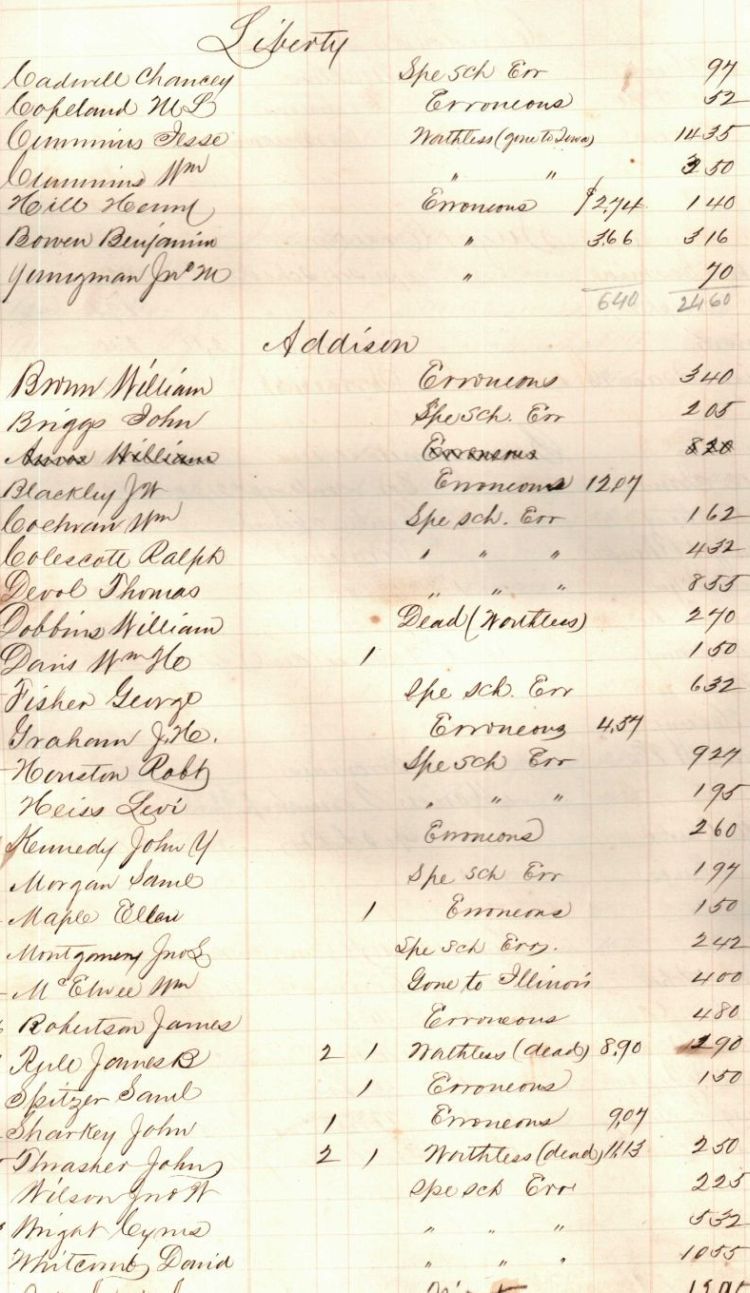 Liberty
Cadwell Chancey Spe Sch Err 97
Copeland M L Erroneous 52
Cummins Jesse Worthless (gone to Iowa) 1435
Cummins Wm " " 350
Hill Henry Erroneous $2.74 140
Bowen Benjamin " 3.66 316
Youngman Jno M " 70
640 2460
Addison
Brown William Erroneous 340
Briggs John Spe Sch. Err 205
William Erroneous 820
Blackley J W Erroneous 12.07
Cochran Wm Spe Sch. Err 162
Colescott Ralph " " " 432
Devol Thomas " " " 855
Dobbins William Dead (Worthless) 270
Davis Wm H 1 150
Fisher George Spe Sch. Err 632
Graham J. H. Erroneous 4.57
Houston Robt Spe Sch Err 927
Heiss Levi " " " 195
Kennedy John Y Erroneous 260
Morgan Saml Spe Sch Err 197
Maple Ellen 1 Erroneous 150
Montgomery Jno L Spe Sch Err. 242
McElwee Wm Gone to Illinois 400
Robertson James Erroneous 480
Rule James B 2 1 Worthless (dead) 8.90 290
Spitzer Saml 1 Erroneous 150
Sharkey John 1 Erroneous 9.07
Thrasher John 2 1 Worthless (dead) 11.13 250
Wilson Jno W Spe Sch Err 225
Wright Cyrus " " " 532
Whitcomb David " " " 1055